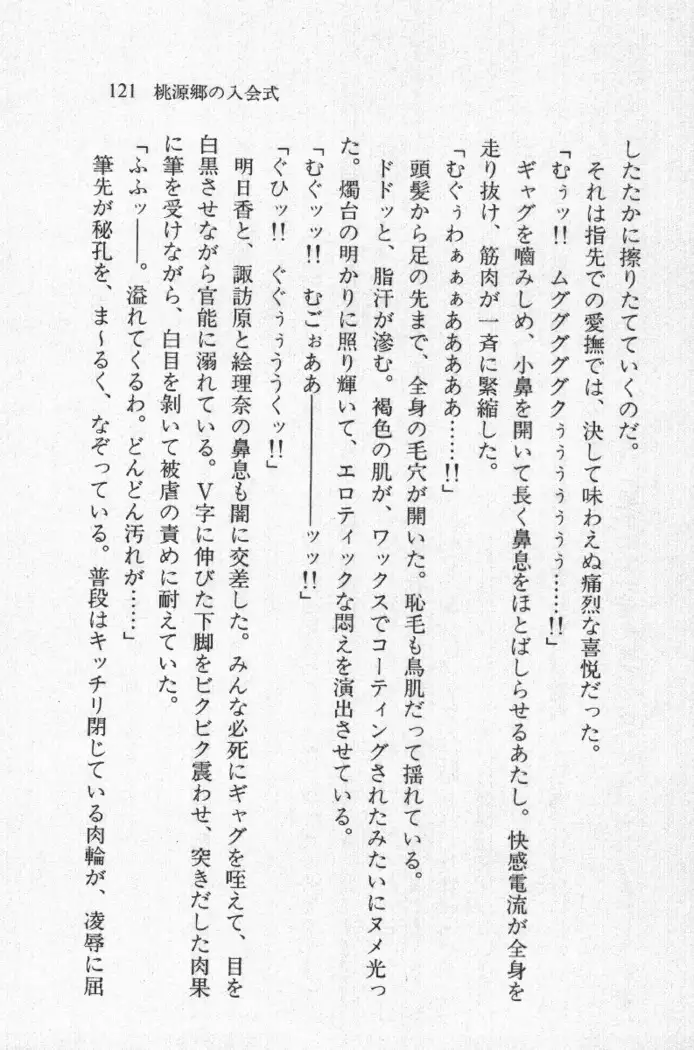 121 桃源郷の入会式
したたかに擦りたてていくのだ。
それは指先での愛撫では、決して味わえぬ痛烈な喜悦だった。
「むぅッ!! ムググググググクぅぅぅぅぅぅ……!!」
ギャグを嚙みしめ、小鼻を開いて長く鼻息をほとばしらせるあたし。快感電流が全身を
走り抜け、筋肉が一斉に緊縮した。
「むぐぅわぁぁぁあああああ……!!」
頭髪から足の先まで、全身の毛穴が開いた。恥毛も鳥肌だって揺れている。
ドドッと、脂汗が滲む。褐色の肌が、ワックスでコーティングされたみたいにヌメ光っ
た。燭台の明かりに照り輝いて、エロティックな悶えを演出させている。
「むぐッッ!! むごぉああ――――ッッ!!」
「ぐひッ!! ぐぐぅぅううくッ!!」
明日香と、諏訪原と絵理奈の鼻息も闇に交差した。みんな必死にギャグを咥えて、目を
白黒させながら官能に溺れている。V字に伸びた下脚をビクビク震わせ、突きだした肉果
に筆を受けながら、白目を剝いて被虐の責めに耐えていた。
「ふふッ――。溢れてくるわ。どんどん汚れが……」
筆先が秘孔を、ま〜るく、なぞっている。普段はキッチリ閉じている肉輪が、凌辱に屈